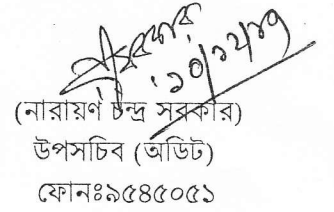 ১০/১২/১৭
(নারায়ণ চন্দ্র সরকার)
উপসচিব (অডিট)
ফোনঃ৯৫৪৫০৫১